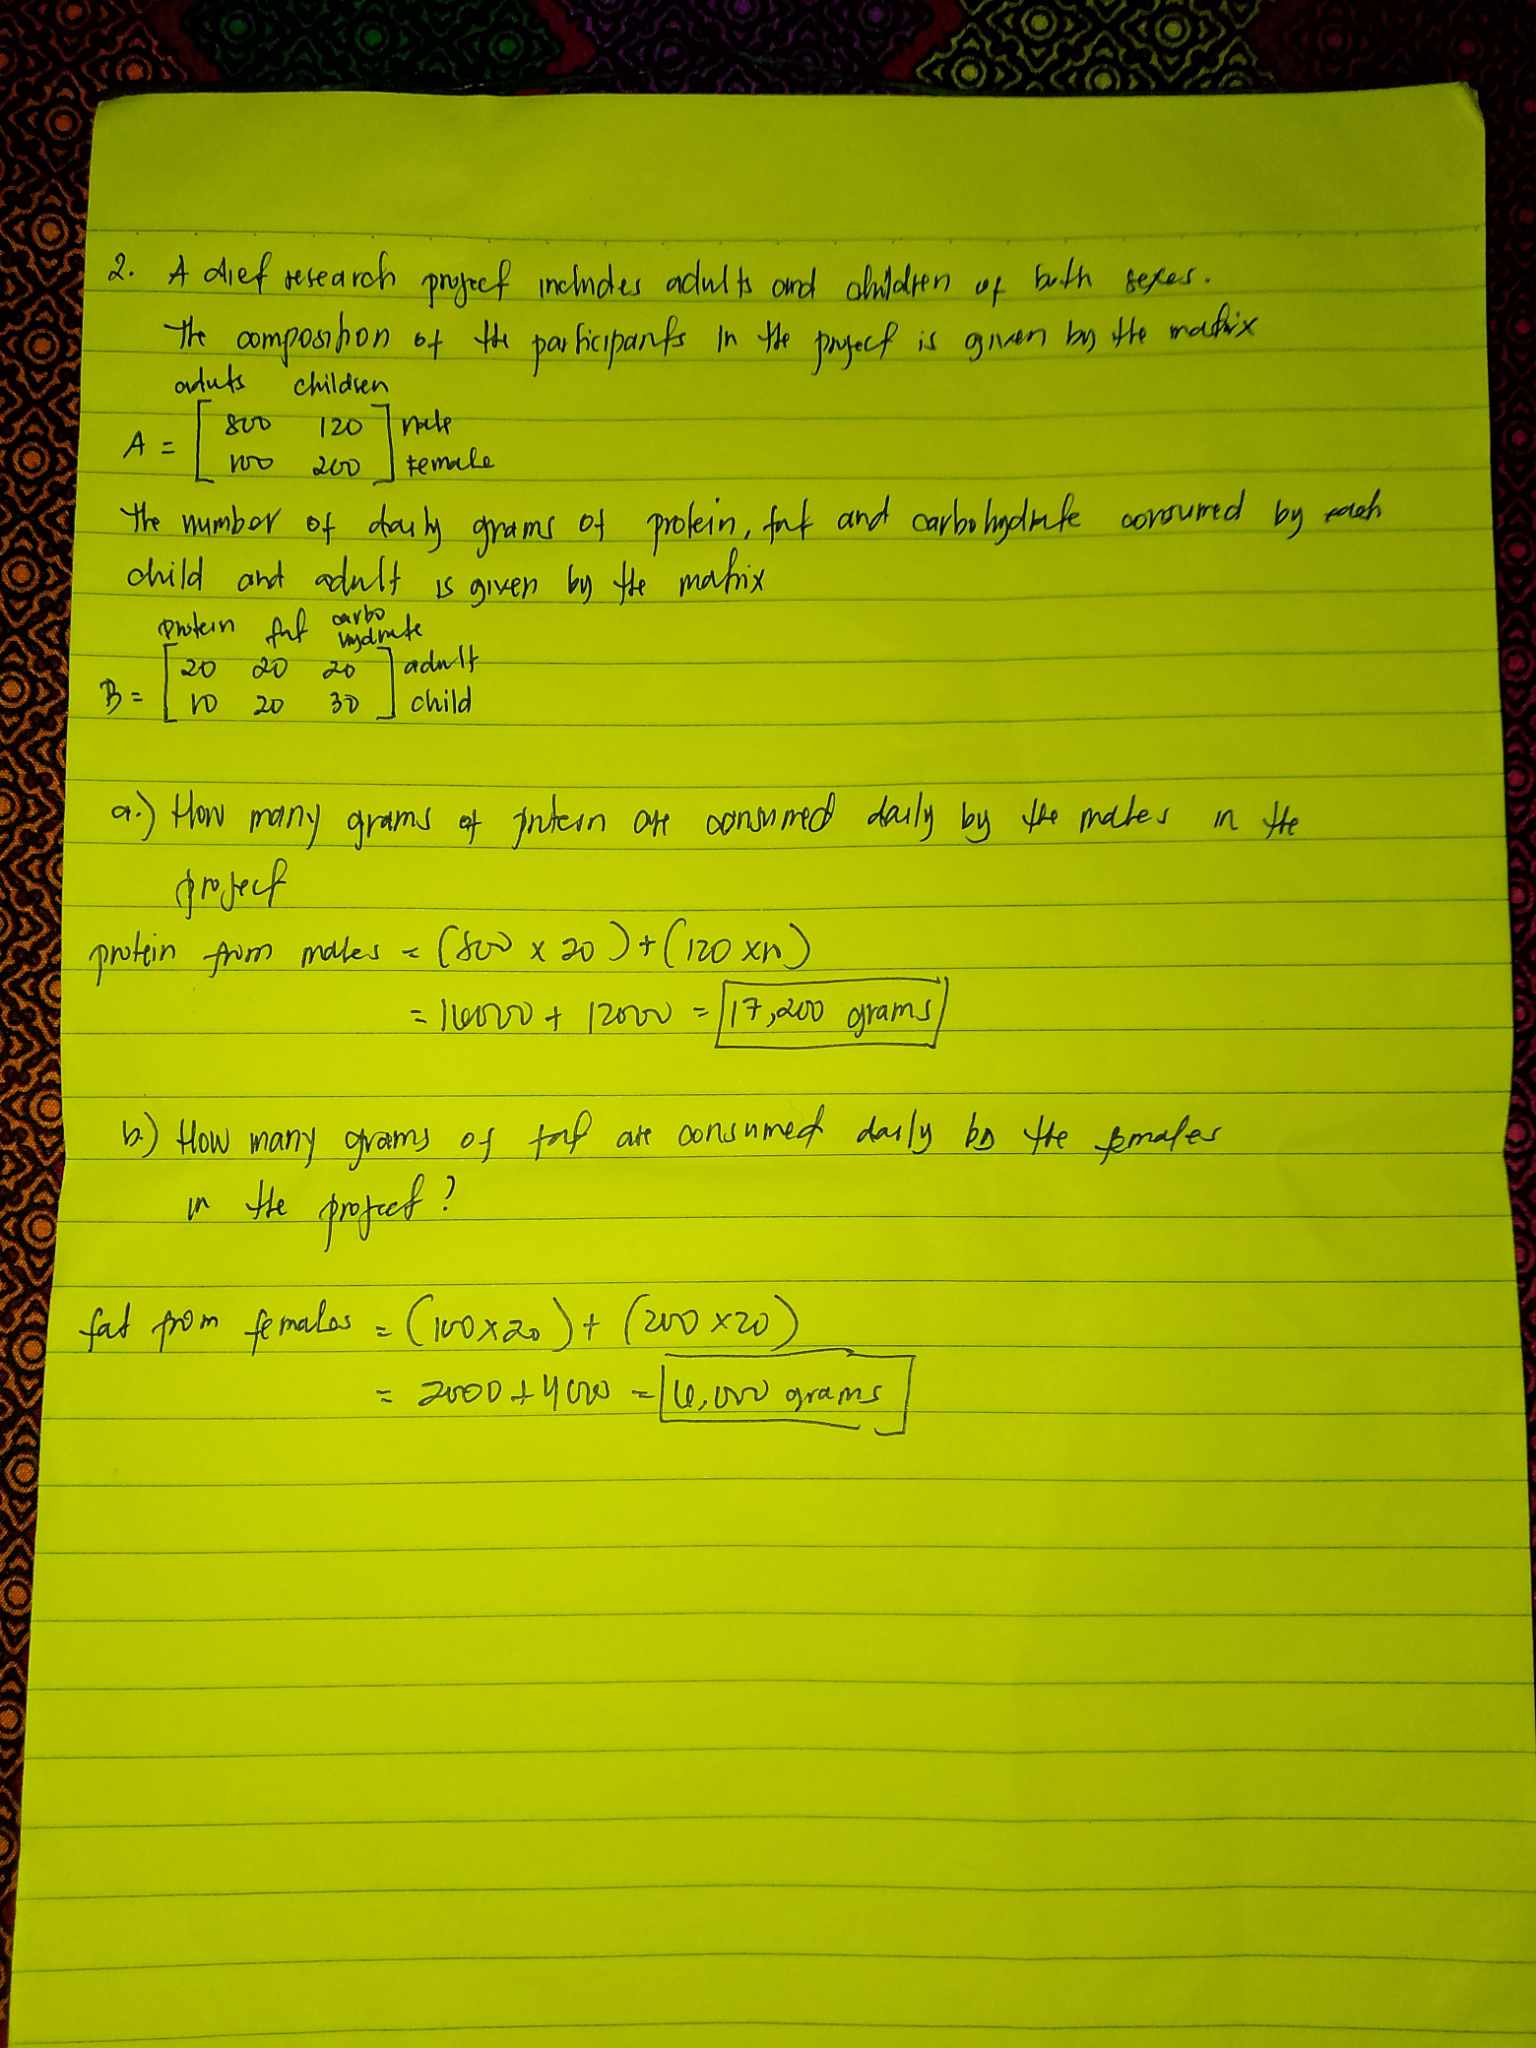 2. A diet research project includes adults and children of both sexes.
The composition of the participants in the project is given by the matrix
aduts children
A = [ 800 120 ] male
[ 100 200 ] female
The number of daily grams of protein, fat and carbohydrate consumed by each
child and adult is given by the matrix
protein fat carbo hydrate
B = [ 20 20 20 ] adult
[ 10 20 30 ] child
a.) How many grams of protein are consumed daily by the males in the
project
protein from males = (800 x 20) + (120 x 10)
= 16000 + 12000 = 17,200 grams
b.) How many grams of fat are consumed daily by the females
in the project?
fat from females = (100x20) + (200 x20)
= 2000 + 4000 = 6,000 grams